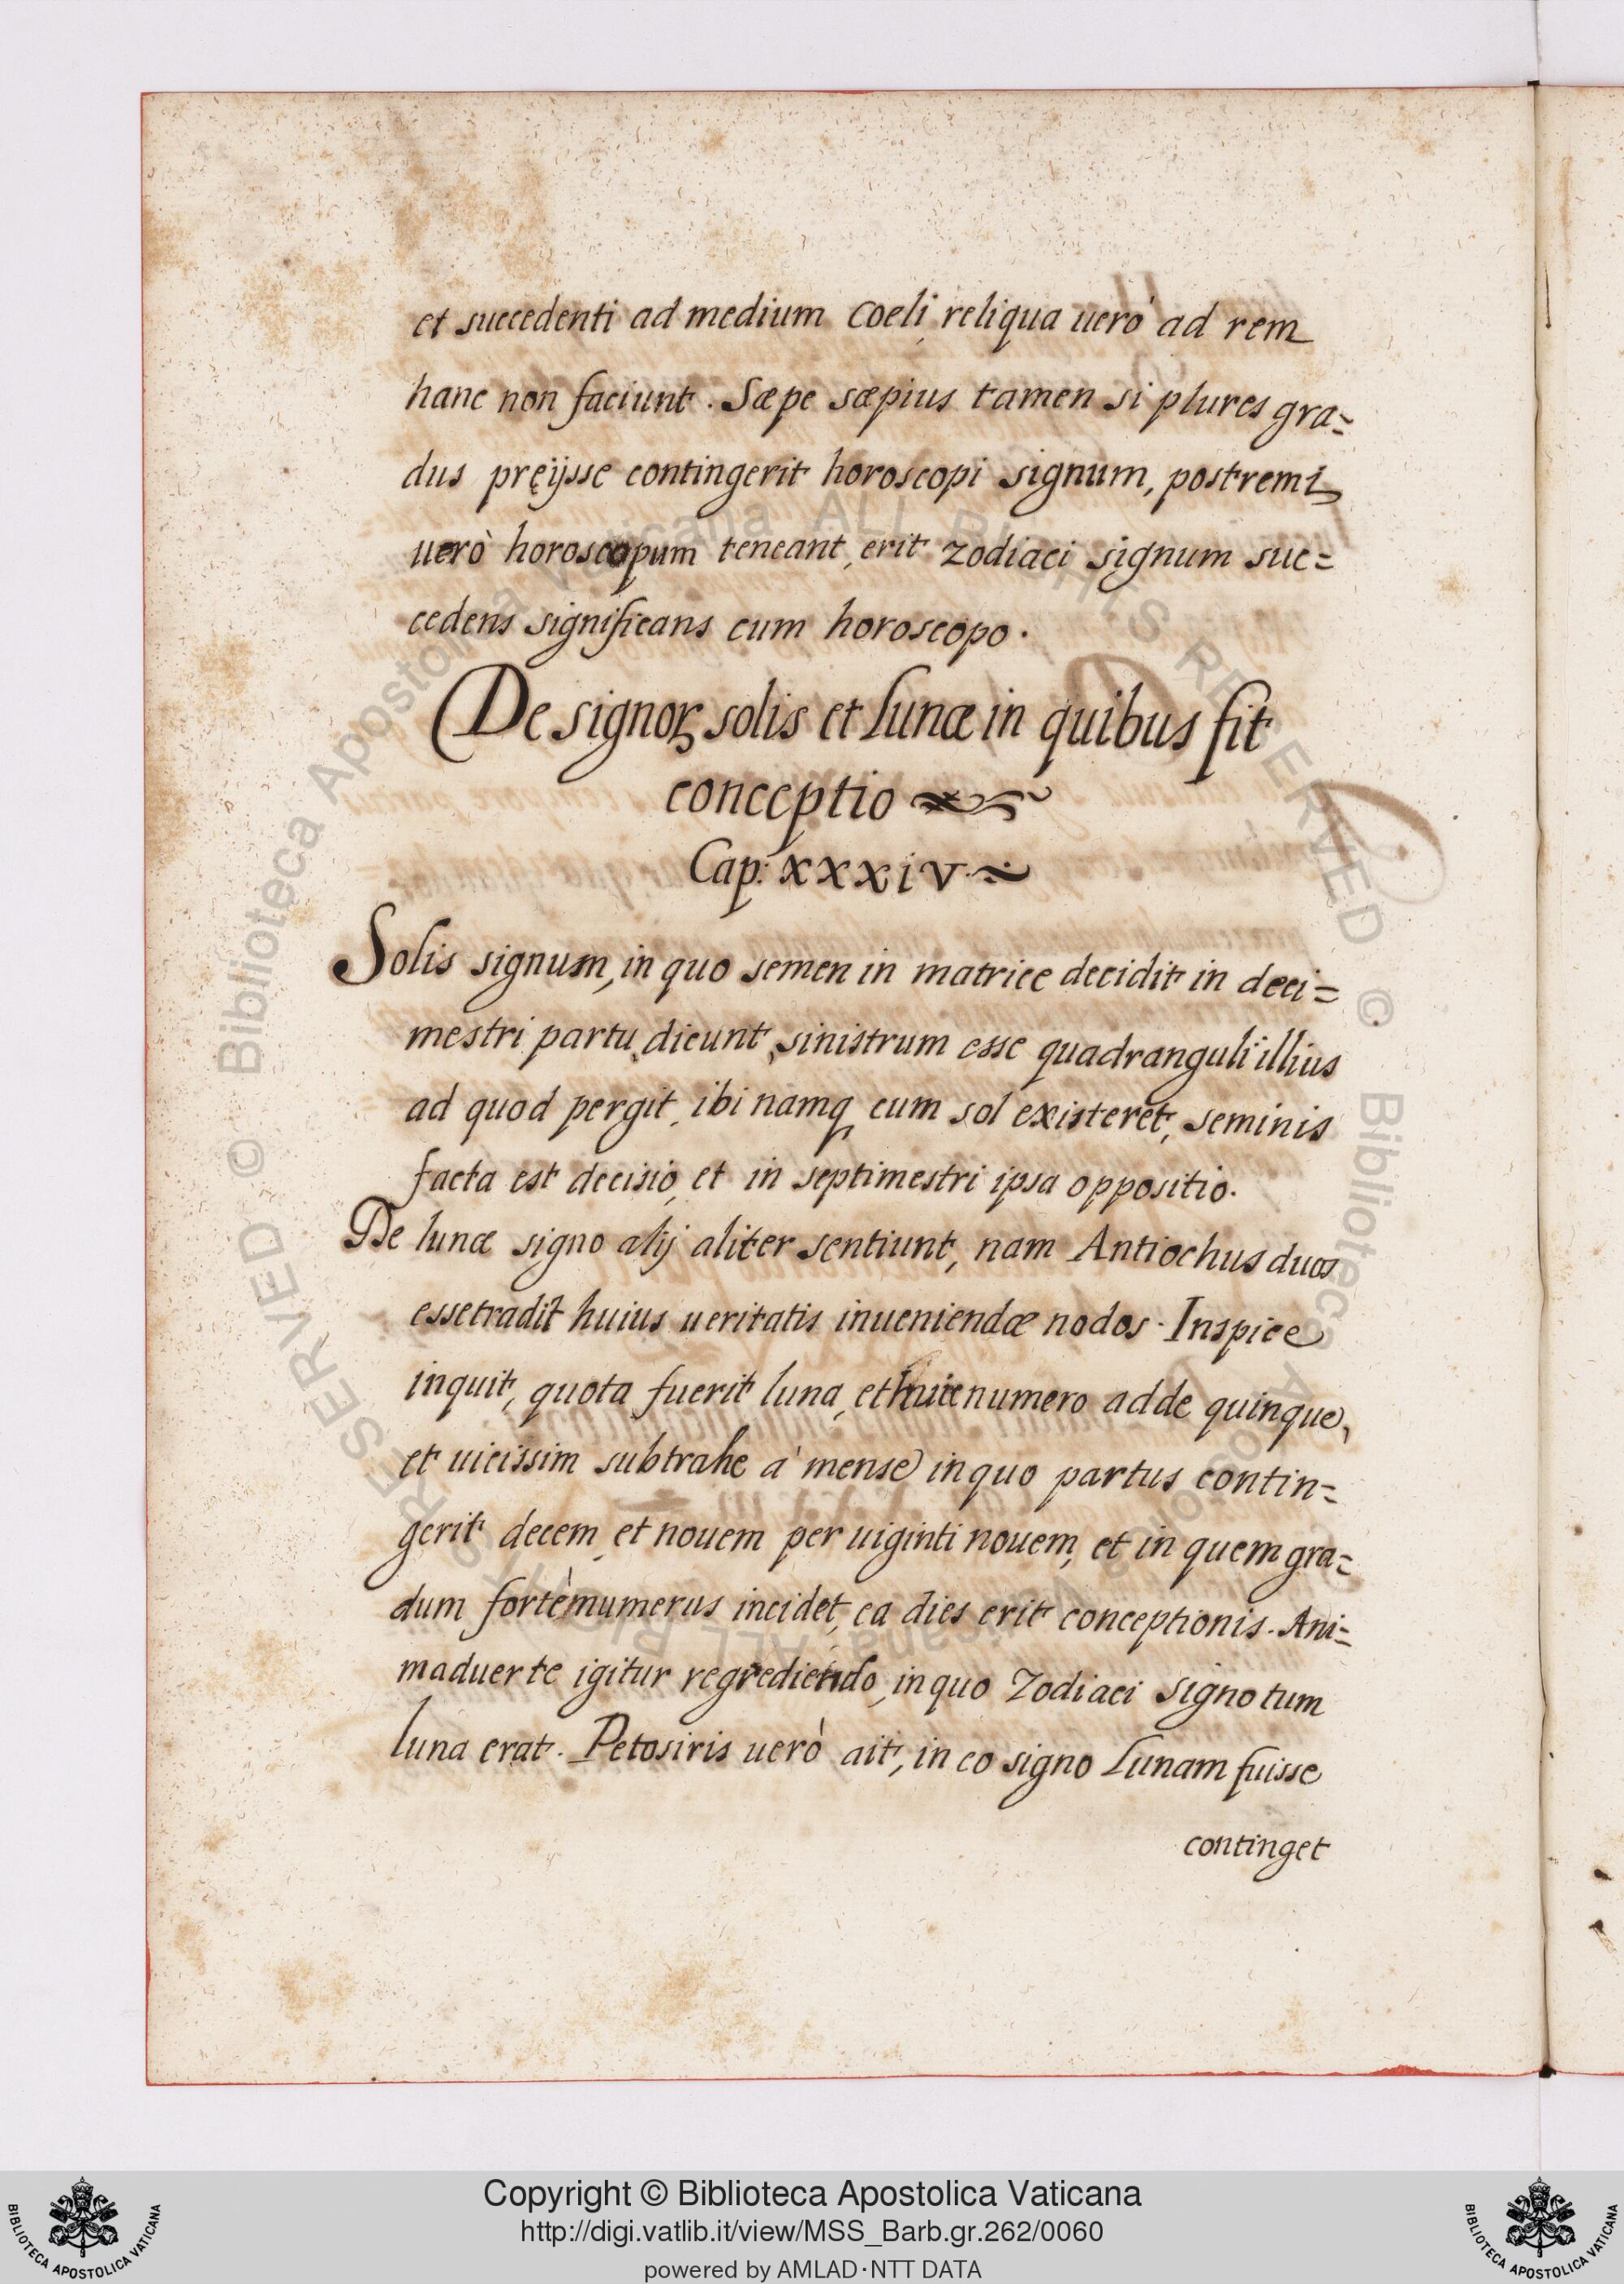 et succedenti ad medium coeli, reliqua uerò ad rem
hanc non faciunt. Sæpe sæpius tamen si plures gra=
dus pręijsse contingerit horoscopi signum, postremi
uerò horoscopum teneant, erit zodiaci signum suc=
cedens significans cum horoscopo.
De signoꝝ solis et lunæ in quibus fit
conceptio
Cap: xxxiv.
Solis signum, in quo semen in matrice decidit in deci=
mestri partu, dicunt, sinistrum esse quadranguli illius
ad quod pergit, ibi namq cum sol existeret, seminis
facta est decisio, et in septimestri ipsa oppositio.
De lunæ signo alij aliter sentiunt, nam Antiochus duos
esse tradit huius ueritatis inueniendæ nodos. Inspice
inquit, quota fuerit luna, et huic numero adde quinque,
et uicissim subtrahe à mense in quo partus contin=
gerit decem, et nouem per uiginti nouem, et in quem gra=
dum fortè numerus incidet, ea dies erit conceptionis. Ani=
maduerte igitur regrediendo, in quo Zodiaci signo tum
luna erat. Petosiris uerò ait, in eo signo Lunam fuisse
continget
Copyright © Biblioteca Apostolica Vaticana
http://digi.vatlib.it/view/MSS_Barb.gr.262/0060
powered by AMLAD·NTT DATA
BIBLIOTECA APOSTOLICA VATICANA
BIBLIOTECA APOSTOLICA VATICANA